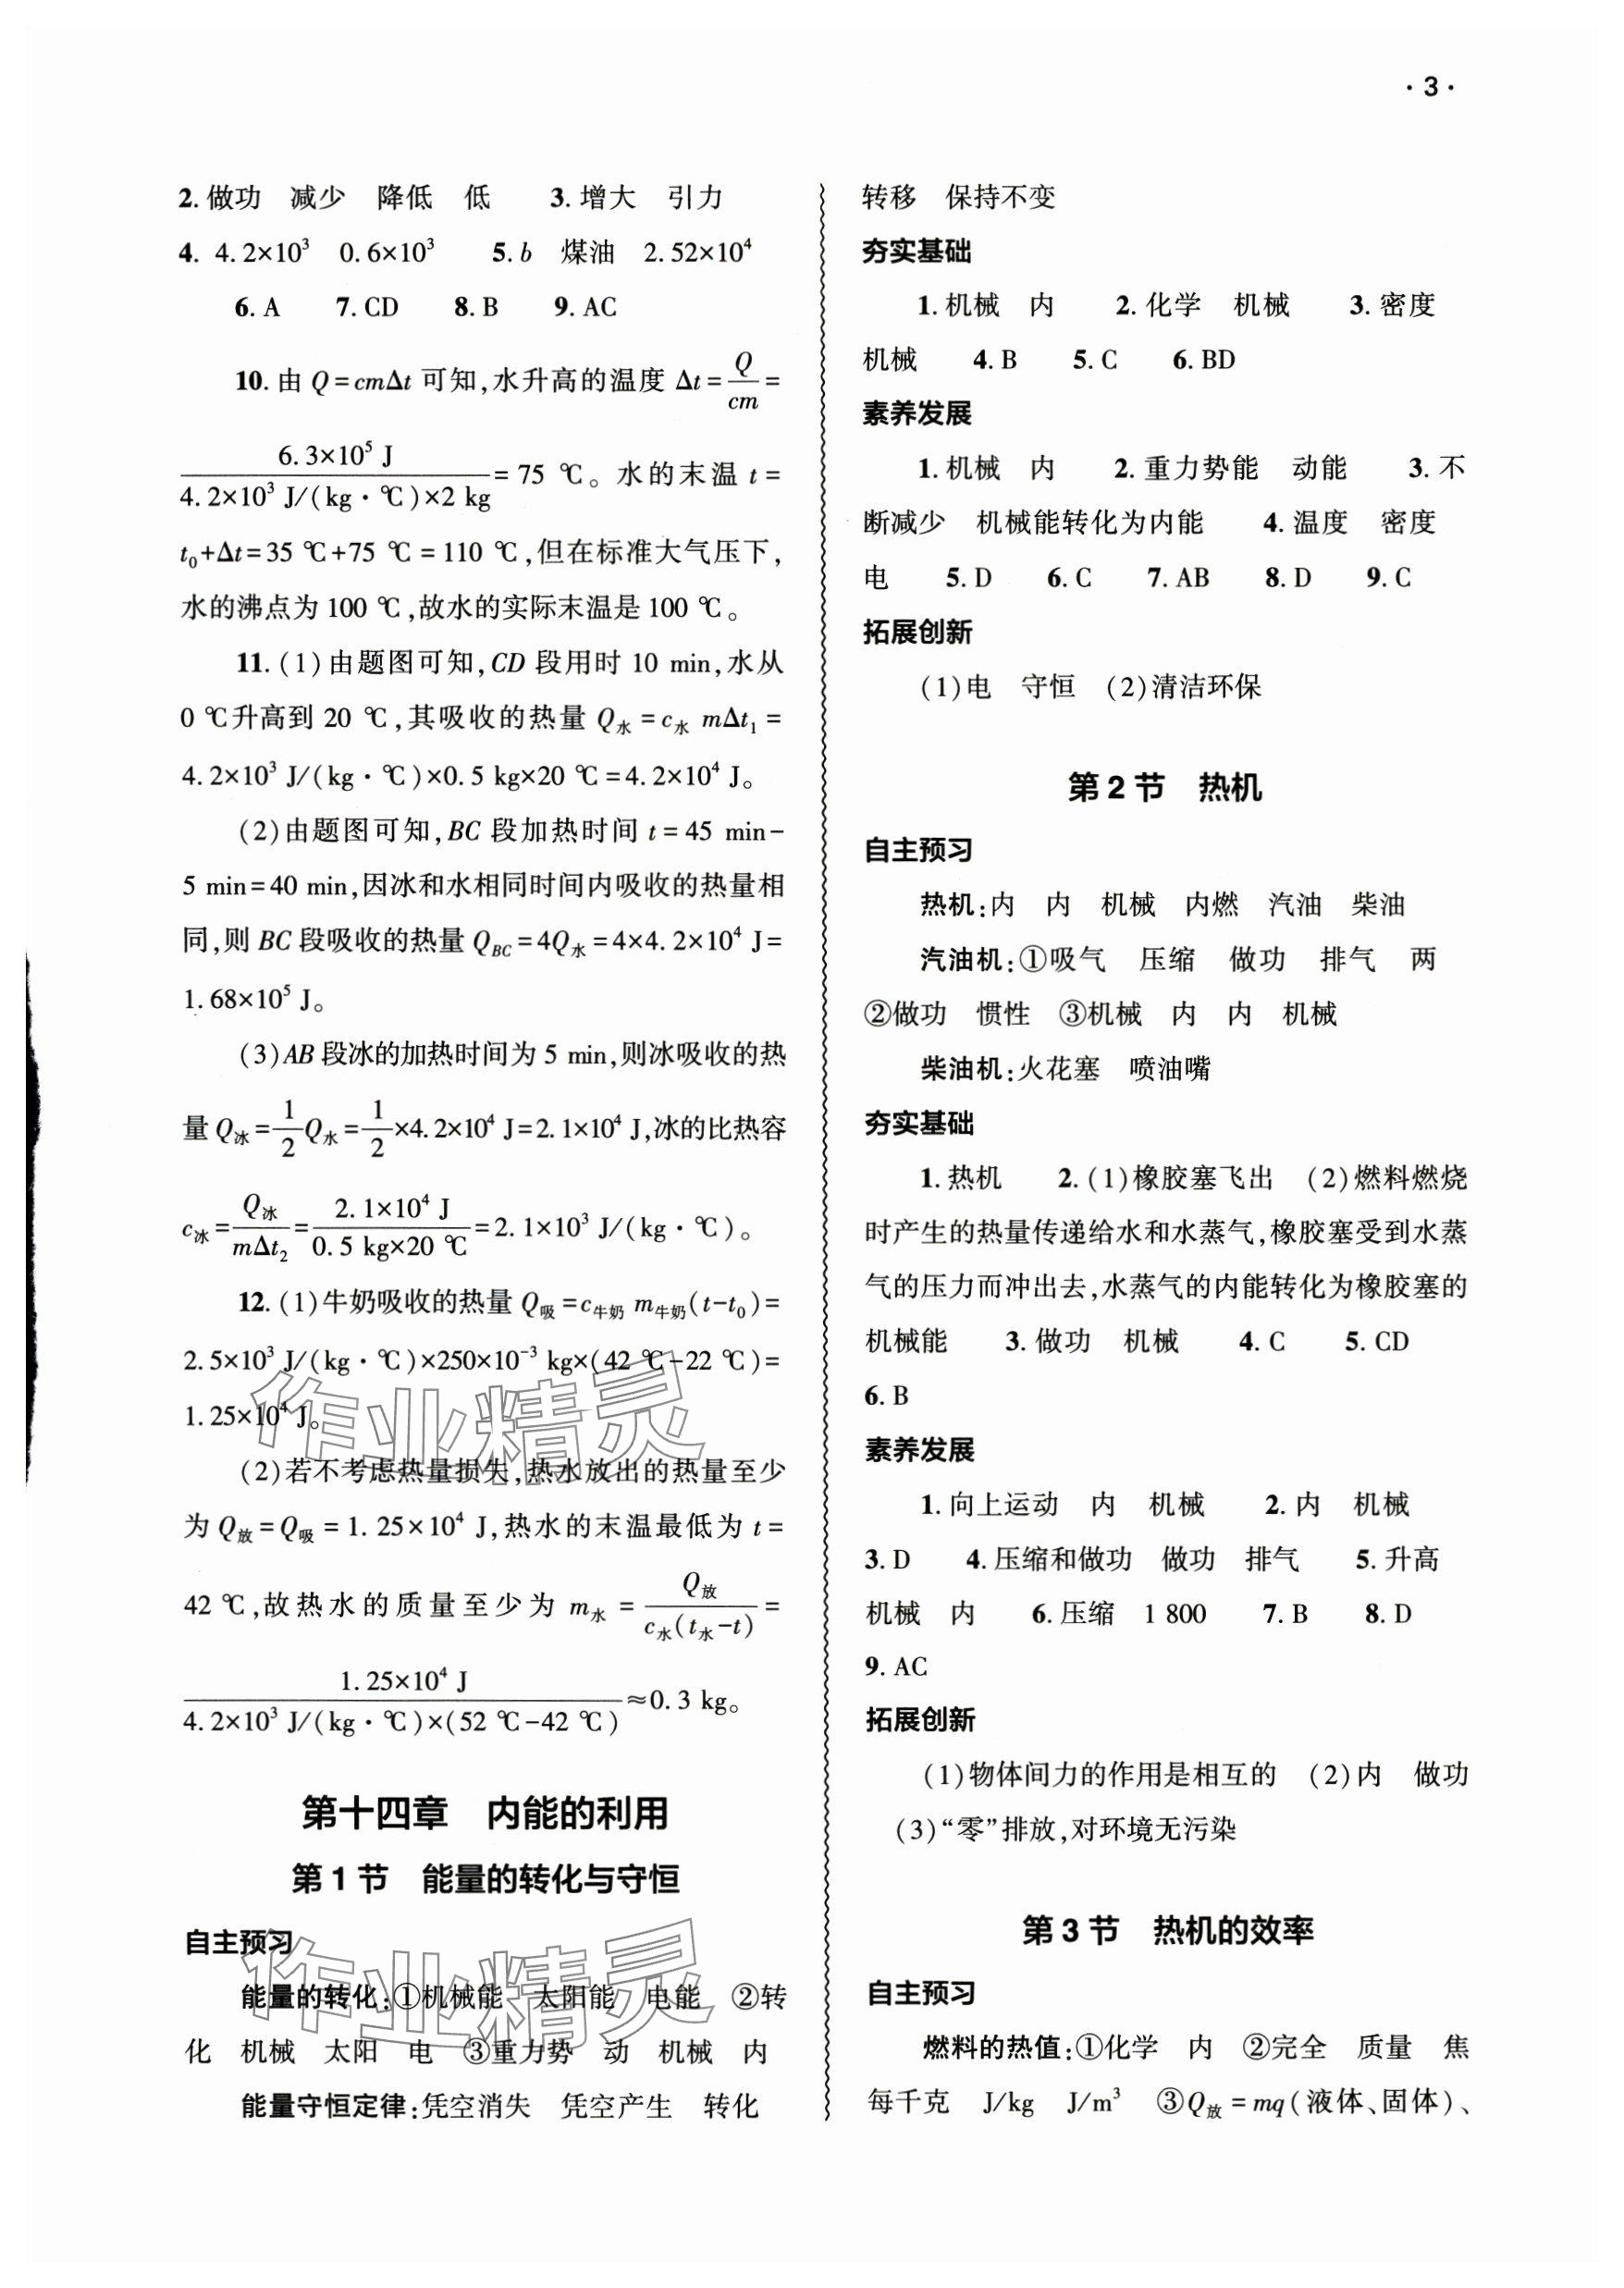 · 3 ·
2. 做功　减少　降低　低　　3. 增大　引力
4. 4.2×10³　0.6×10³　　5. b　煤油　2.52×10⁴
6. A　　7. CD　　8. B　　9. AC
10. 由 Q=cmΔt 可知,水升高的温度 Δt=Q/cm=
6.3×10⁵ J/[4.2×10³ J/(kg·℃)×2 kg]=75 ℃。水的末温 t=
t₀+Δt=35 ℃+75 ℃=110 ℃,但在标准大气压下,
水的沸点为 100 ℃,故水的实际末温是 100 ℃。
11. (1)由题图可知,CD 段用时 10 min,水从
0 ℃升高到 20 ℃,其吸收的热量 Q水=c水 mΔt₁=
4.2×10³ J/(kg·℃)×0.5 kg×20 ℃=4.2×10⁴ J。
(2)由题图可知,BC 段加热时间 t=45 min-
5 min=40 min,因冰和水相同时间内吸收的热量相
同,则 BC 段吸收的热量 Q_BC=4Q水=4×4.2×10⁴ J=
1.68×10⁵ J。
(3)AB 段冰的加热时间为 5 min,则冰吸收的热
量 Q冰=1/2 Q水=1/2×4.2×10⁴ J=2.1×10⁴ J,冰的比热容
c冰=Q冰/(mΔt₂)=2.1×10⁴ J/(0.5 kg×20 ℃)=2.1×10³ J/(kg·℃)。
12. (1)牛奶吸收的热量 Q吸=c牛奶 m牛奶(t-t₀)=
2.5×10³ J/(kg·℃)×250×10⁻³ kg×(42 ℃-22 ℃)=
1.25×10⁴ J。
(2)若不考虑热量损失,热水放出的热量至少
为 Q放=Q吸=1.25×10⁴ J,热水的末温最低为 t=
42 ℃,故热水的质量至少为 m水=Q放/[c水(t水-t)]=
1.25×10⁴ J/[4.2×10³ J/(kg·℃)×(52 ℃-42 ℃)]≈0.3 kg。
作业精灵
第十四章　内能的利用
第 1 节　能量的转化与守恒
自主预习
能量的转化:①机械能　太阳能　电能　②转
化　机械　太阳　电　③重力势　动　机械　内
能量守恒定律:凭空消失　凭空产生　转化
作业精灵
转移　保持不变
夯实基础
1. 机械　内　　2. 化学　机械　　3. 密度
机械　　4. B　　5. C　　6. BD
素养发展
1. 机械　内　　2. 重力势能　动能　　3. 不
断减少　机械能转化为内能　　4. 温度　密度
电　　5. D　　6. C　　7. AB　　8. D　　9. C
拓展创新
(1)电　守恒　(2)清洁环保
第 2 节　热机
自主预习
热机:内　内　机械　内燃　汽油　柴油
汽油机:①吸气　压缩　做功　排气　两
②做功　惯性　③机械　内　内　机械
柴油机:火花塞　喷油嘴
夯实基础
1. 热机　　2. (1)橡胶塞飞出　(2)燃料燃烧
时产生的热量传递给水和水蒸气,橡胶塞受到水蒸
气的压力而冲出去,水蒸气的内能转化为橡胶塞的
机械能　　3. 做功　机械　　4. C　　5. CD
6. B
素养发展
1. 向上运动　内　机械　　2. 内　机械
3. D　　4. 压缩和做功　做功　排气　　5. 升高
机械　内　　6. 压缩　1 800　　7. B　　8. D
9. AC
拓展创新
(1)物体间力的作用是相互的　(2)内　做功
(3)“零”排放,对环境无污染
第 3 节　热机的效率
自主预习
燃料的热值:①化学　内　②完全　质量　焦
每千克　J/kg　J/m³　③Q放=mq(液体、固体)、